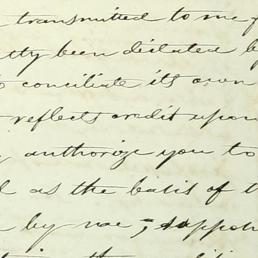 transmitted to me f
been dictated by
conciliate its own
reflects credit upon
authorize you to
as the basis of t
by me;